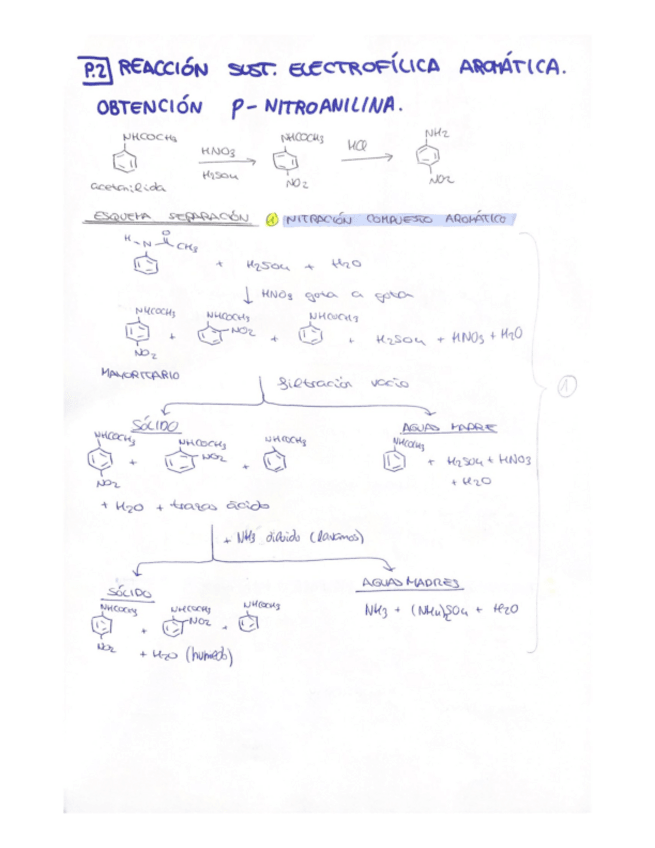 P.2 REACCIÓN SUST. ELECTROFÍLICA AROMÁTICA.
OBTENCIÓN P-NITROANILINA.
NHCOCH3 HNO3 H2SO4 NHCOCH3 NO2 HCl NH2 NO2
acetanilida
ESQUEMA SEPARACIÓN 1 NITRACIÓN COMPUESTO AROMÁTICO
H-N O CH3 + H2SO4 + H2O
↓ HNO3 gota a gota
NHCOCH3 NO2 + NHCOCH3 NO2 + NHCOCH3 + H2SO4 + HNO3 + H2O
MAYORITARIO
filtración vacío
1
SÓLIDO
NHCOCH3 NO2 + NHCOCH3 NO2 + NHCOCH3
+ H2O + trazas ácido
AGUAS MADRE
NHCOCH3 + H2SO4 + HNO3
+ H2O
+ NH3 diluido (lavamos)
SÓLIDO
NHCOCH3 NO2 + NHCOCH3 NO2 + NHCOCH3
+ H2O (humedo)
AGUAS MADRES
NH3 + (NH4)2SO4 + H2O